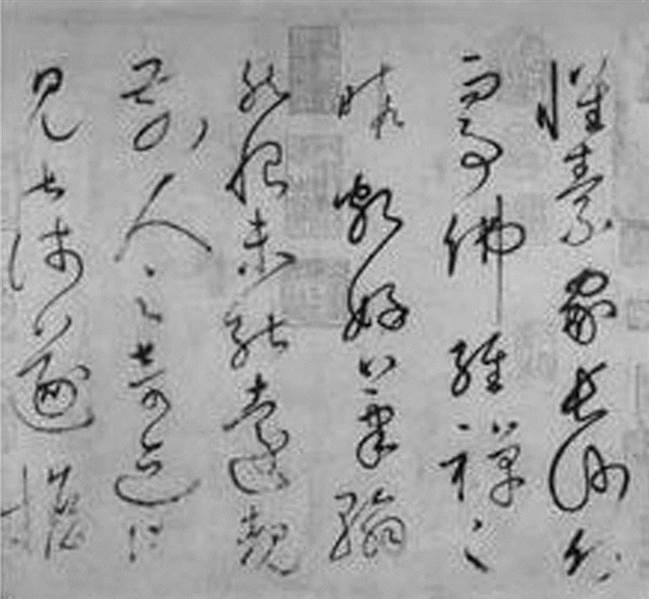 懷素家長沙幼
而事佛經禪之
暇頗好筆翰
然恨未能遠覩
前人之奇迹所
見甚淺遂擔